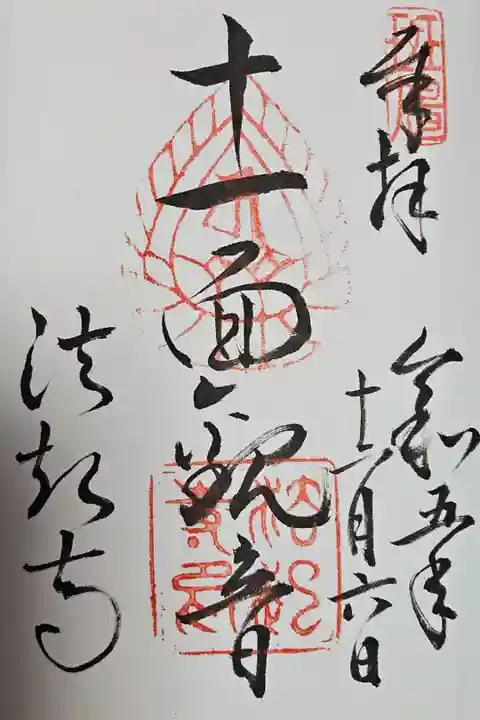 奉拝
令和五年
十一月六日
十一面観音
法起寺
斑鳩